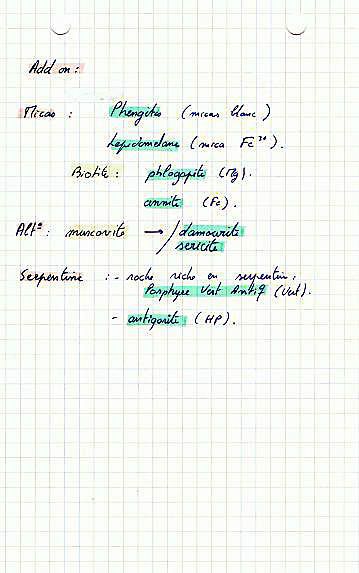 Add on :
Micas : Phengites (micas blanc)
Lepidomelane (mica Fe³⁺).
Biotite : phlogopite (Mg).
annite (Fe).
Altº : muscovite → / damourite
séricite
Serpentine : - roche riche en serpentine :
Porphyre Vert Antiq (Vert).
- antigorite (HP).